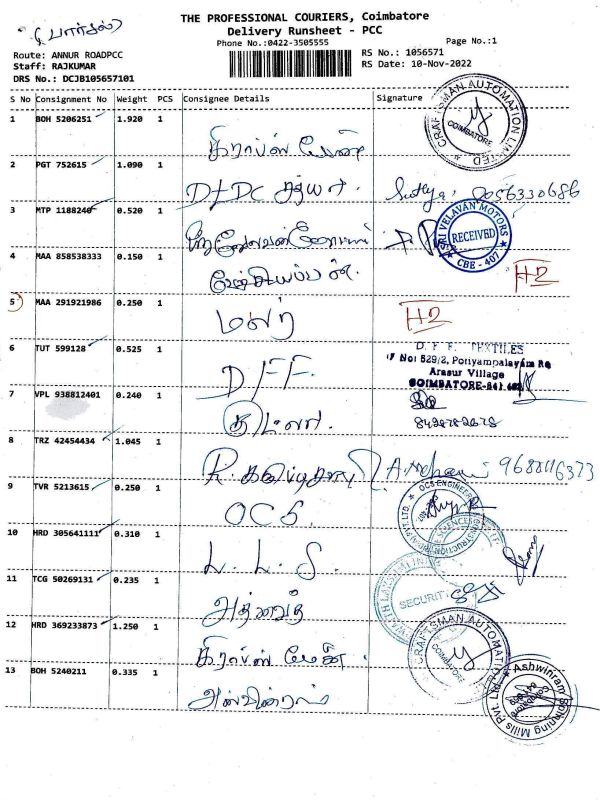 (பார்சல்)
THE PROFESSIONAL COURIERS, Coimbatore
Delivery Runsheet - PCC
Phone No.:0422-3505555
Page No.:1
Route: ANNUR ROADPCC
Staff: RAJKUMAR
DRS No.: DCJB105657101
RS No.: 1056571
RS Date: 10-Nov-2022
S No Consignment No Weight PCS Consignee Details Signature
1 BOH 5206251 1.920 1
CRAFTSMAN AUTOMATION LIMITED COIMBATORE
2 PGT 752615 1.090 1 DTDC சத்யா. Sathya.
3 MTP 1188240 0.520 1
SRI VELAVAN MOTORS RECEIVED CBE - 407
4 MAA 858538333 0.150 1 H2
5 MAA 291921986 0.250 1 மலர் H2
6 TUT 599128 0.525 1 D.F.F.
D. F. F. TEXTILES
No: 529/2, Poniyampalayam Rd
Arasur Village
COIMBATORE-641 407
7 VPL 938812401 0.240 1
8 TRZ 42454434 1.045 1 9688116373
9 TVR 5213615 0.250 1 OCS.
10 HRD 305641111 0.310 1 L.L.S.
11 TCG 50269131 0.235 1 அத்வைத்
SECURITY
12 HRD 369233873 1.250 1
CRAFTSMAN AUTOMATION COIMBATORE
13 BOH 5240211 0.335 1 அஸ்வின்ராம்
Ashwinram Spinning Mills Pvt. Ltd.